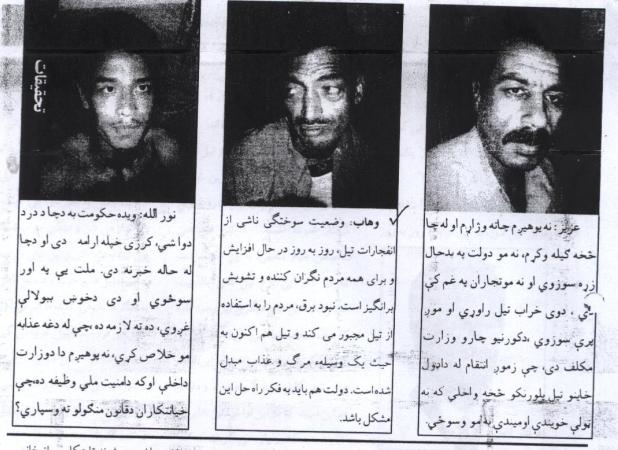 عزيز: نه پوهيږم چاته وژاړم او له چا
څخه ګيله وکړم، نه مو دولت په بدحال
زړه سوزوي او نه موتجاران په غم کې
دي، دوی خراب تيل راوړي او موږ
پرې سوزوي، دکورنيو چارو وزارت
مکلف دی، چې زموږ انتقام له داډول
خاينو تيل پلورنکو څخه واخلي که نه
ټولې خويندې اوميندې به مو وسوځي.
وهاب: وضعيت سوختگی ناشی از
انفجارات تيل، روز به روز در حال افزايش
و برای همه مردم نگران کننده و تشويش
برانگيز است. نبود برق، مردم را به استفاده
از تيل مجبور می کند و تيل هم اکنون به
حيث يک وسيلهء مرگ و عذاب مبدل
شده است. دولت هم بايد به فکر راه حل اين
مشکل باشد.
تحقيقات
نور الله: ويده حکومت به دچا د درد
دوا شي، کرزی خپله ارامه دی او دچا
له حاله خبرنه دی. ملت يې په اور
سوځوي او دی دخوښۍ ببولالې
غږوي، ده ته لازمه ده،چې له دغه عذابه
مو خلاص کړي، نه پوهيږم دا دوزارت
داخلې اوکه دامنيت ملي وظيفه ده،چې
خيانتکاران دقانون منګولو ته وسپاري؟